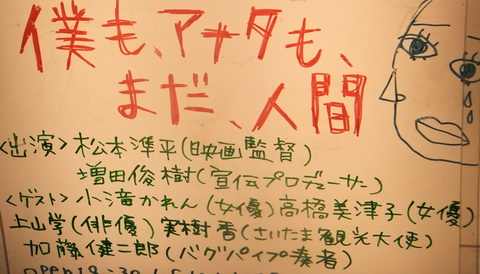 僕も、アナタも、
まだ、人間
<出演>松本准平(映画監督)
増田俊樹(宣伝プロデューサー)
<ゲスト>小滝かれん(女優)高橋美津子(女優)
上山学(俳優)実樹香(さいたま観光大使)
加藤健二郎(バグパイプ奏者)
open 18:30